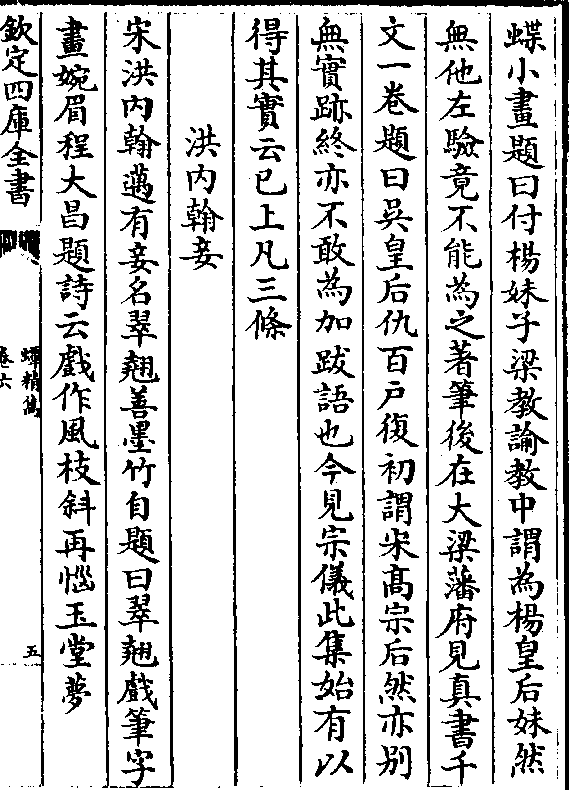 蝶小畫題曰付楊妹子梁教諭教中謂為楊皇后妹然
無他左驗竟不能為之著筆後在大梁藩府見真書千
文一卷題曰吳皇后仇百戸復初謂宋髙宗后然亦别
無實跡終亦不敢為加跋語也今見宗儀此集始有以
得其實云已上凡三條
洪内翰妾
宋洪内翰邁有妾名翠翹善墨竹自題曰翠翹戲筆字
畫婉眉程大昌題詩云戲作風枝斜再惱玉堂夢
欽定四庫全書
蟫精雋
卷六
五